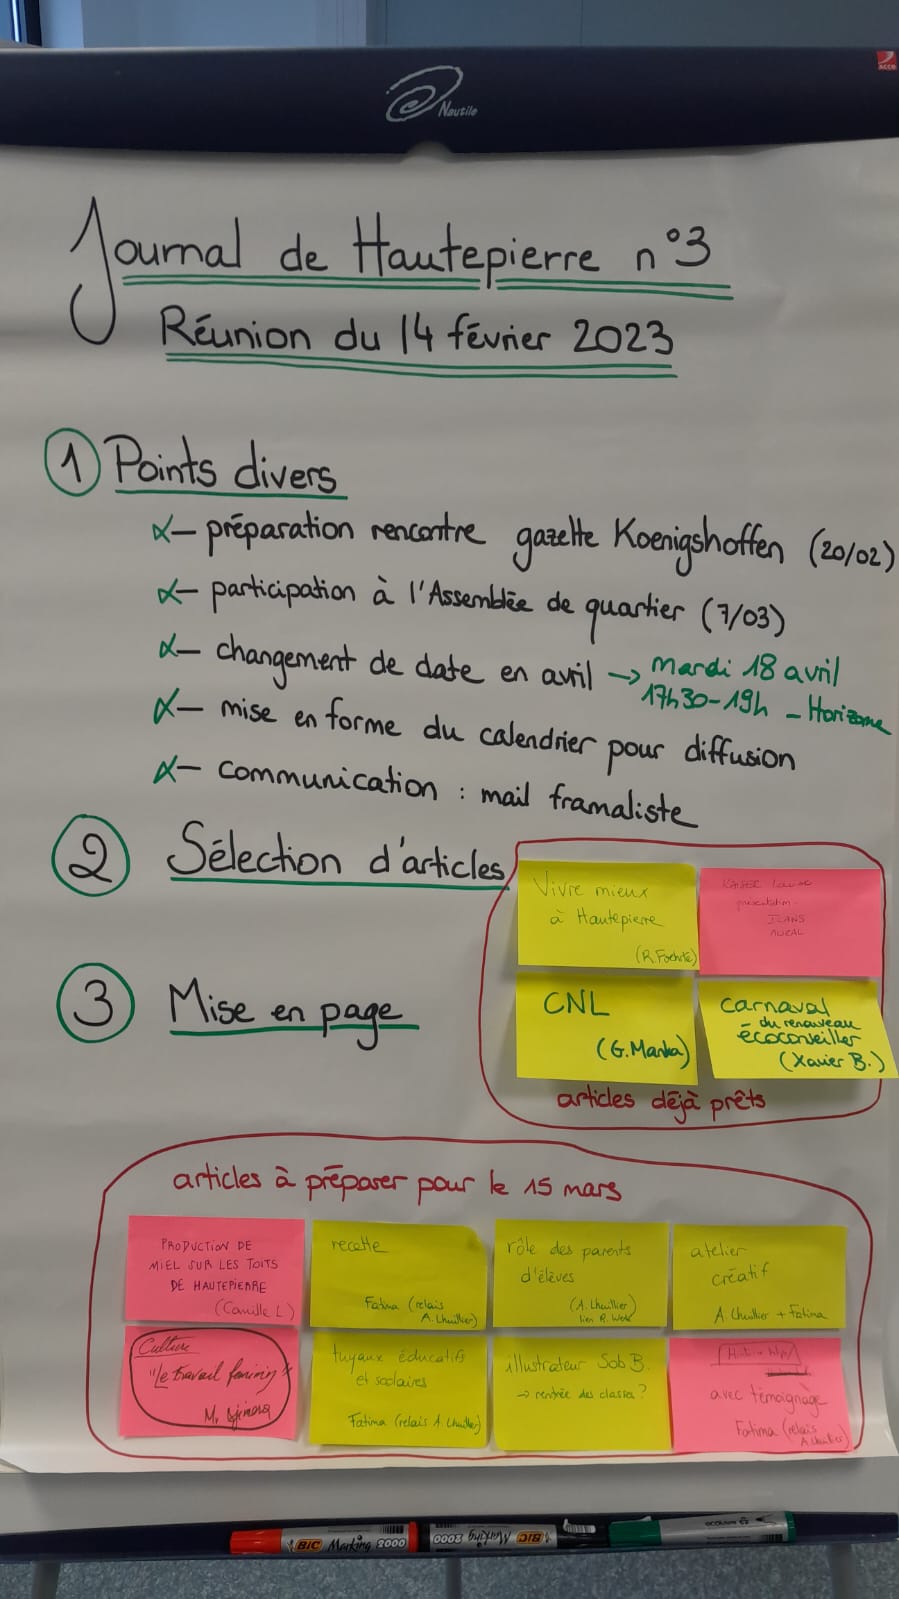 Nautile
acco
Journal de Hautepierre n°3
Réunion du 14 février 2023
1 Points divers
- préparation rencontre gazette Koenigshoffen (20/02)
- participation à l'Assemblée de quartier (7/03)
- changement de date en avril → mardi 18 avril
17h30-19h - Horizome
- mise en forme du calendrier pour diffusion
- communication : mail framaliste
2 Sélection d'articles
Vivre mieux
à Hautepierre
(R.
KAISER
présentation
MURAL
3 Mise en page
CNL
(G. Manka)
carnaval
du renouveau
écoconseiller
(Xavier B.)
articles déjà prêts
articles à préparer pour le 15 mars
PRODUCTION DE
MIEL SUR LES TOITS
DE HAUTEPIERRE
(Camille L)
recette
Fatima (relais
A. Lhuillier)
rôle des parents
d'élèves
(A. Lhuillier)
lien R.
atelier
créatif
A. Lhuillier + Fatima
Culture
"Le travail féminin"
M.
tuyaux éducatifs
et scolaires
Fatima (relais A. Lhuillier)
illustrateur Sob B.
→ rentrée des classes ?
avec témoignage
Fatima (relais
A. Lhuillier)
BIC Marking 2000
BIC Marking 2000